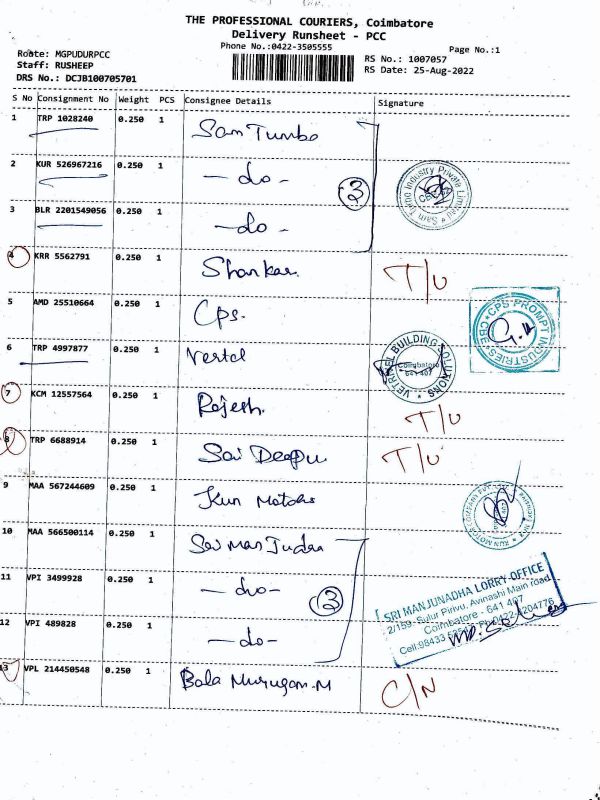 THE PROFESSIONAL COURIERS, Coimbatore
Delivery Runsheet - PCC
Phone No.:0422-3505555
Page No.:1
Roate: MGPUDURPCC
RS No.: 1007057
Staff: RUSHEEP
RS Date: 25-Aug-2022
DRS No.: DCJB100705701
S No Consignment No Weight PCS Consignee Details Signature
1 TRP 1028240 0.250 1 Sam Turbo
2 KUR 526967216 0.250 1 - do -
3
3 BLR 2201549056 0.250 1 - do -
Sam Turbo Industry Private Limited
4 KRR 5562791 0.250 1 Shankar T/U
5 AMD 25510664 0.250 1 Cps.
CPS PROMPT INDUSTRIES CBE
6 TRP 4997877 0.250 1 Vertel
VETRIVEL BUILDING SOLUTIONS
Coimbatore
641 407
7 KCM 12557564 0.250 1 Rajesh. T/U
8 TRP 6688914 0.250 1 Sai Deepu T/U
9 MAA 567244609 0.250 1 Kun Motors
10 MAA 566500114 0.250 1
11 VPI 3499928 0.250 1 - do -
3
12 VPI 489828 0.250 1 - do -
SRI MANJUNADHA LORRY OFFICE
2/159, Sulur Pirivu, Avinashi Main road,
Coimbatore - 641 407
13 VPL 214450548 0.250 1 Bala Murugan.M C/N